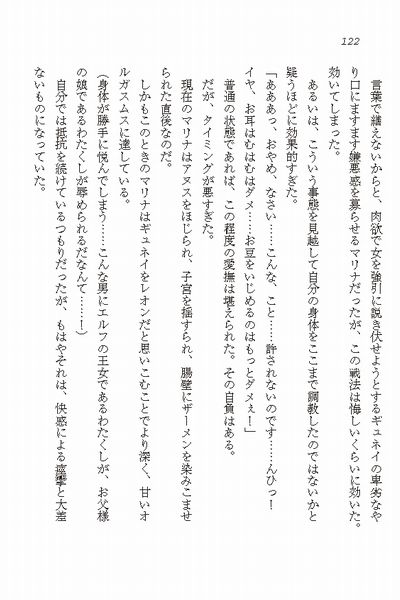 122
言葉で繕えないからと、肉欲で女を強引に説き伏せようとするギュネイの卑劣なや
り口にますます嫌悪感を募らせるマリナだったが、この戦法は悔しいくらいに効いた。
効いてしまった。
あるいは、こういう事態を見越して自分の身体をここまで調教したのではないかと
疑うほどに効果的すぎた。
「あああっ、おやめ、なさい……こんな、こと……許されないのです……んひっ!
イヤ、お耳はむはむはダメ……お豆をいじめるのはもっとダメぇ!」
普通の状態であれば、この程度の愛撫は堪えられた。その自負はある。
だが、タイミングが悪すぎた。
現在のマリナはアヌスをほじられ、子宮を揺すられ、腸壁にザーメンを染みこませ
られた直後なのだ。
しかもこのときのマリナはギュネイをレオンだと思いこむことでより深く、甘いオ
ルガスムスに達している。
(身体が勝手に悦んでしまう……こんな男にエルフの王女であるわたくしが、お父様
の娘であるわたくしが辱められるだなんて……!)
自分では抵抗を続けているつもりだったが、もはやそれは、快感による痙攣と大差
ないものになっていた。